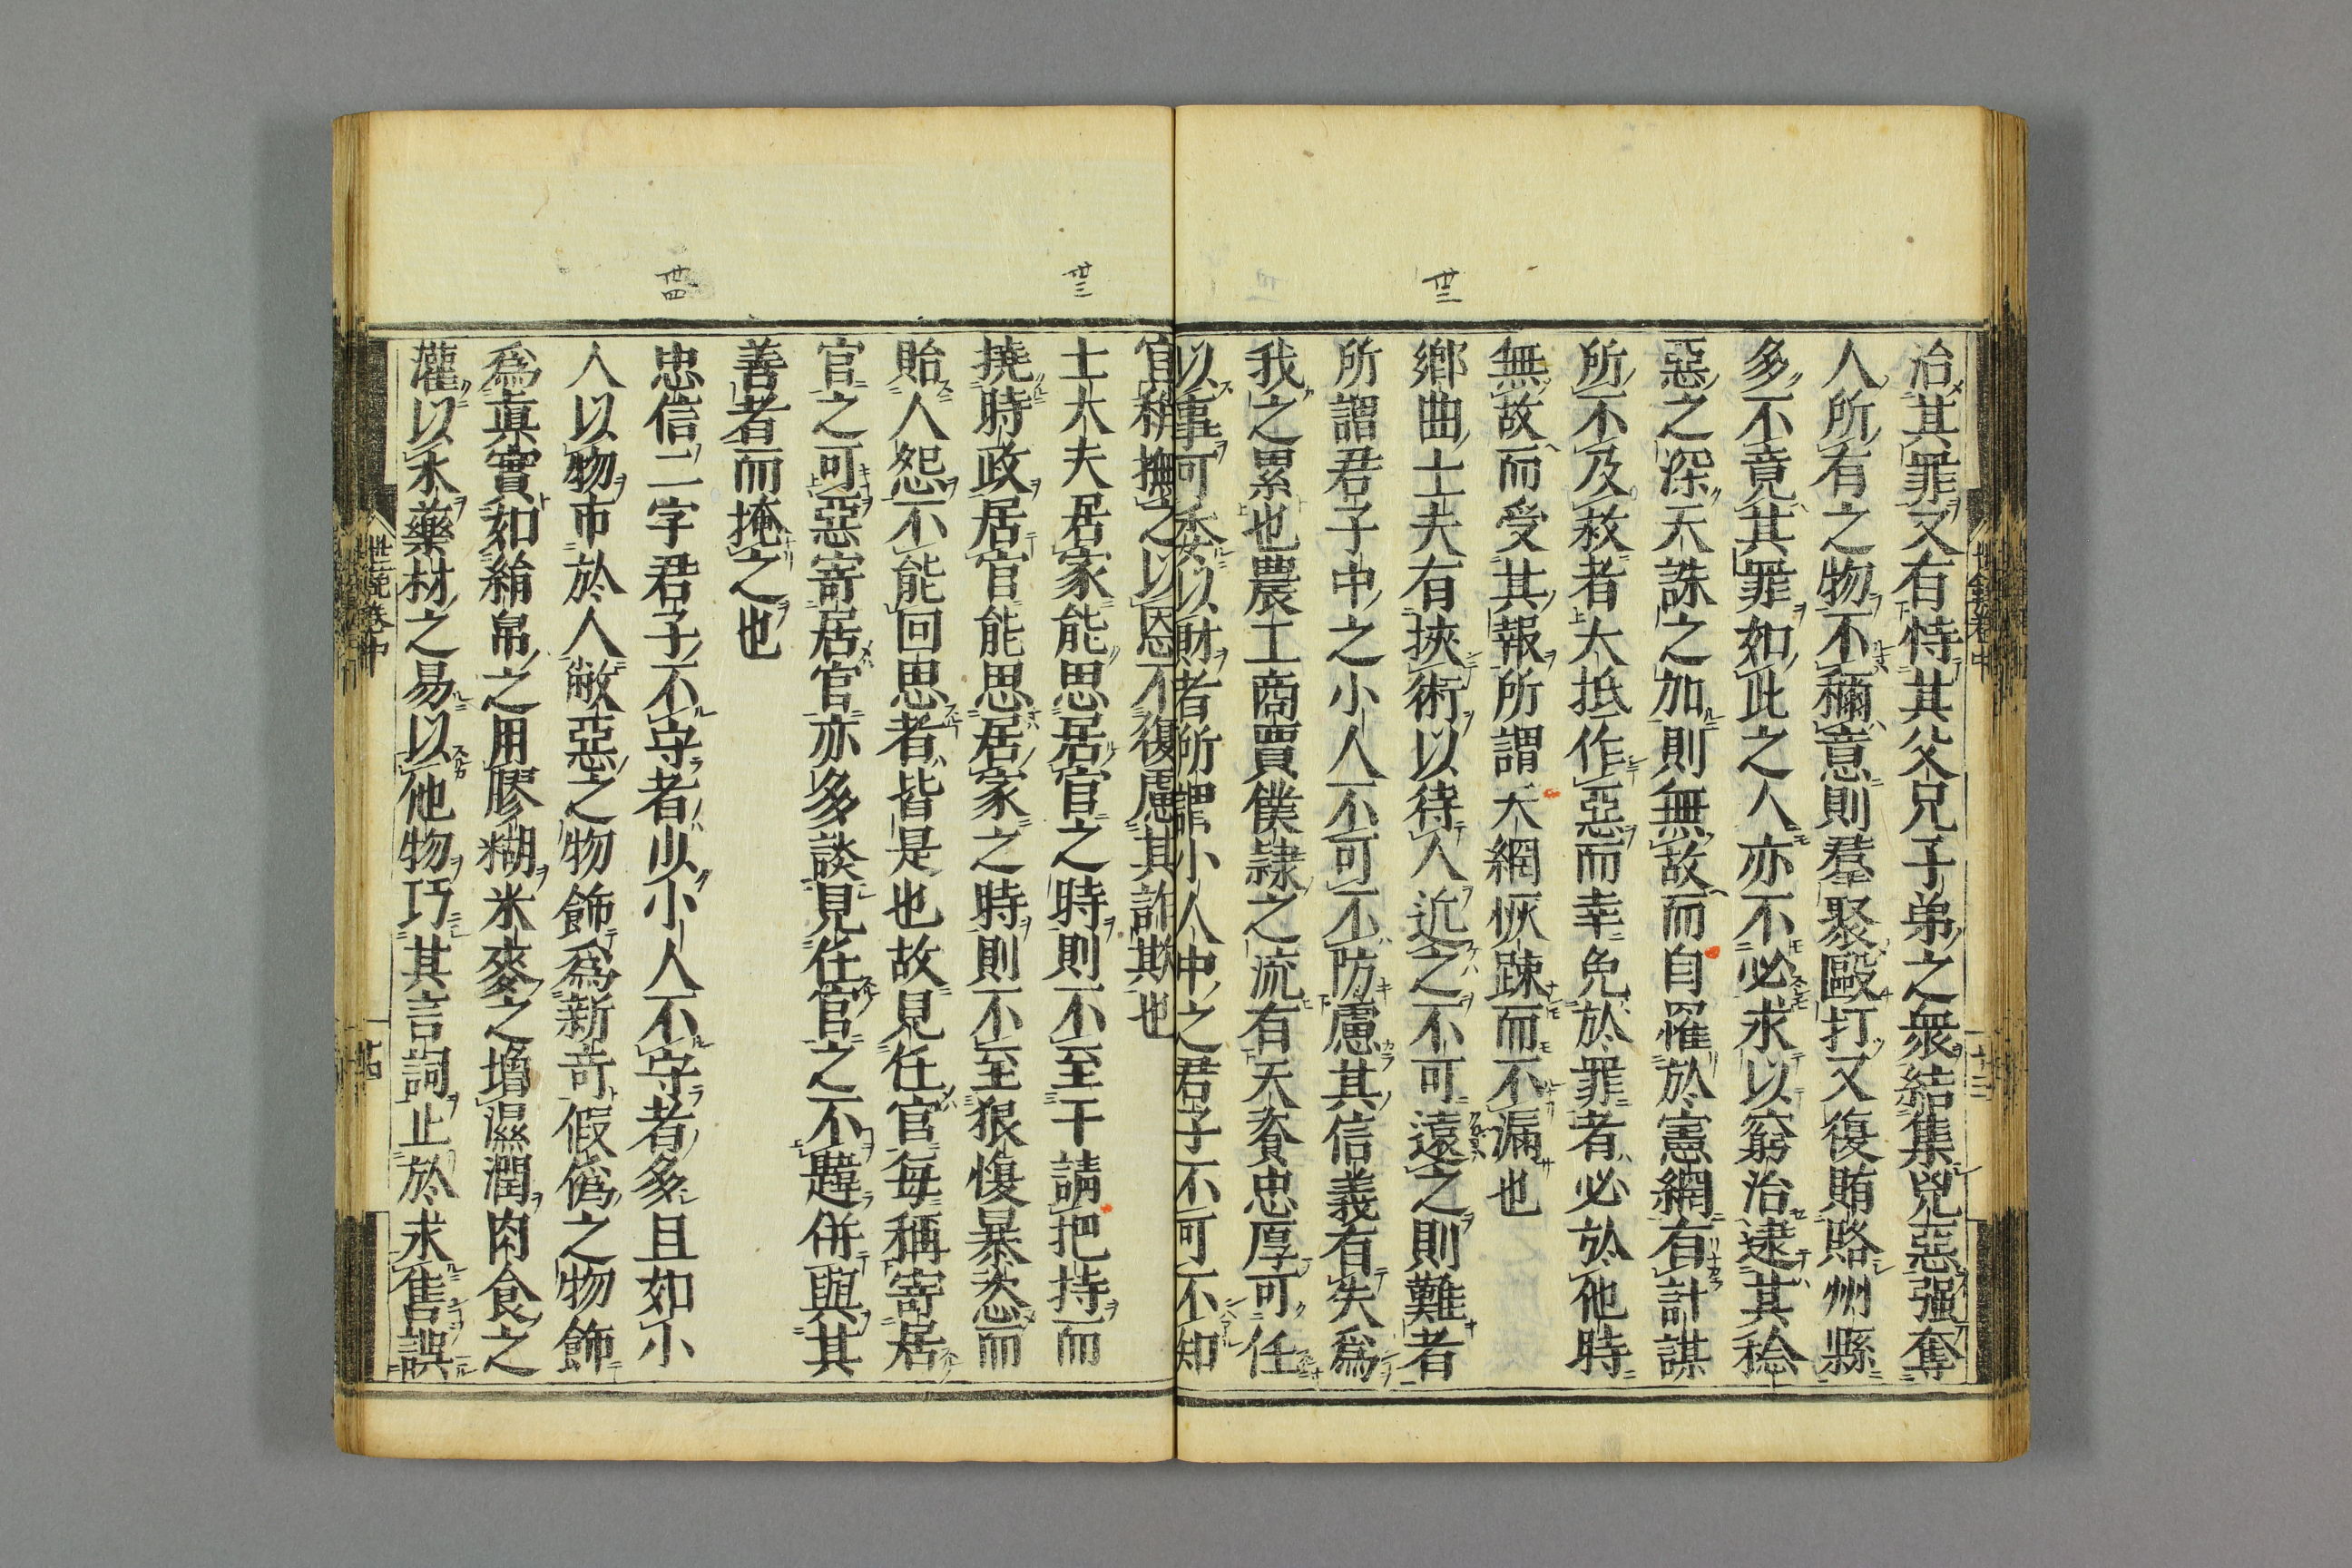 卅二
治其罪又有恃其父兄子弟之衆結集兇惡强奪
人所有之物不稱意則羣聚毆打又復賄賂州縣
多不竟其罪如此之人亦不必求以窮治逮其稔
惡之深天誅之加則無故而自罹於憲網有計謀
所不及救者大抵作惡而幸免於罪者必於他時
無故而受其報所謂天網恢疎而不漏也
鄉曲士夫有挾術以待人近之不可遠之則難者
所謂君子中之小人不可不防慮其信義有失爲
我之累也農工商賈僕隷之流有天資忠厚可任
以事可委以財者所謂小人中之君子不可不知
卅三
卅四
宜稍撫之以恩不復慮其詐欺也
士大夫居家能思居官之時則不至干請把持而
撓時政居官能思居家之時則不至狠愎暴恣而
貽人怨不能回思者皆是也故見任官每稱寄居
官之可惡寄居官亦多談見任官之不韙併與其
善者而掩之也
忠信二字君子不守者少小人不守者多且如小
人以物市於人敝惡之物飾爲新奇假僞之物飾
爲眞實如絹帛之用膠糊米麥之增濕潤肉食之
灌以水藥材之易以他物巧其言詞止於求售誤
世範卷中
十四